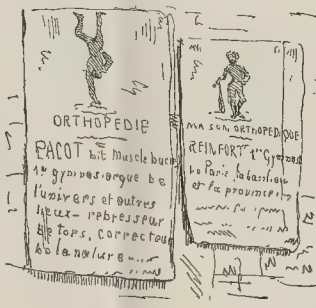 ORTHOPEDIE
PACOT bit Muscle
1er gymnasiarque de
l'univers et autres
lieux- redresseur
de tors, correcteur
de la nature
MAISON ORTHOPEDIQUE
REINFORT 1er Gymnas
de Paris, la banlieue
et la province